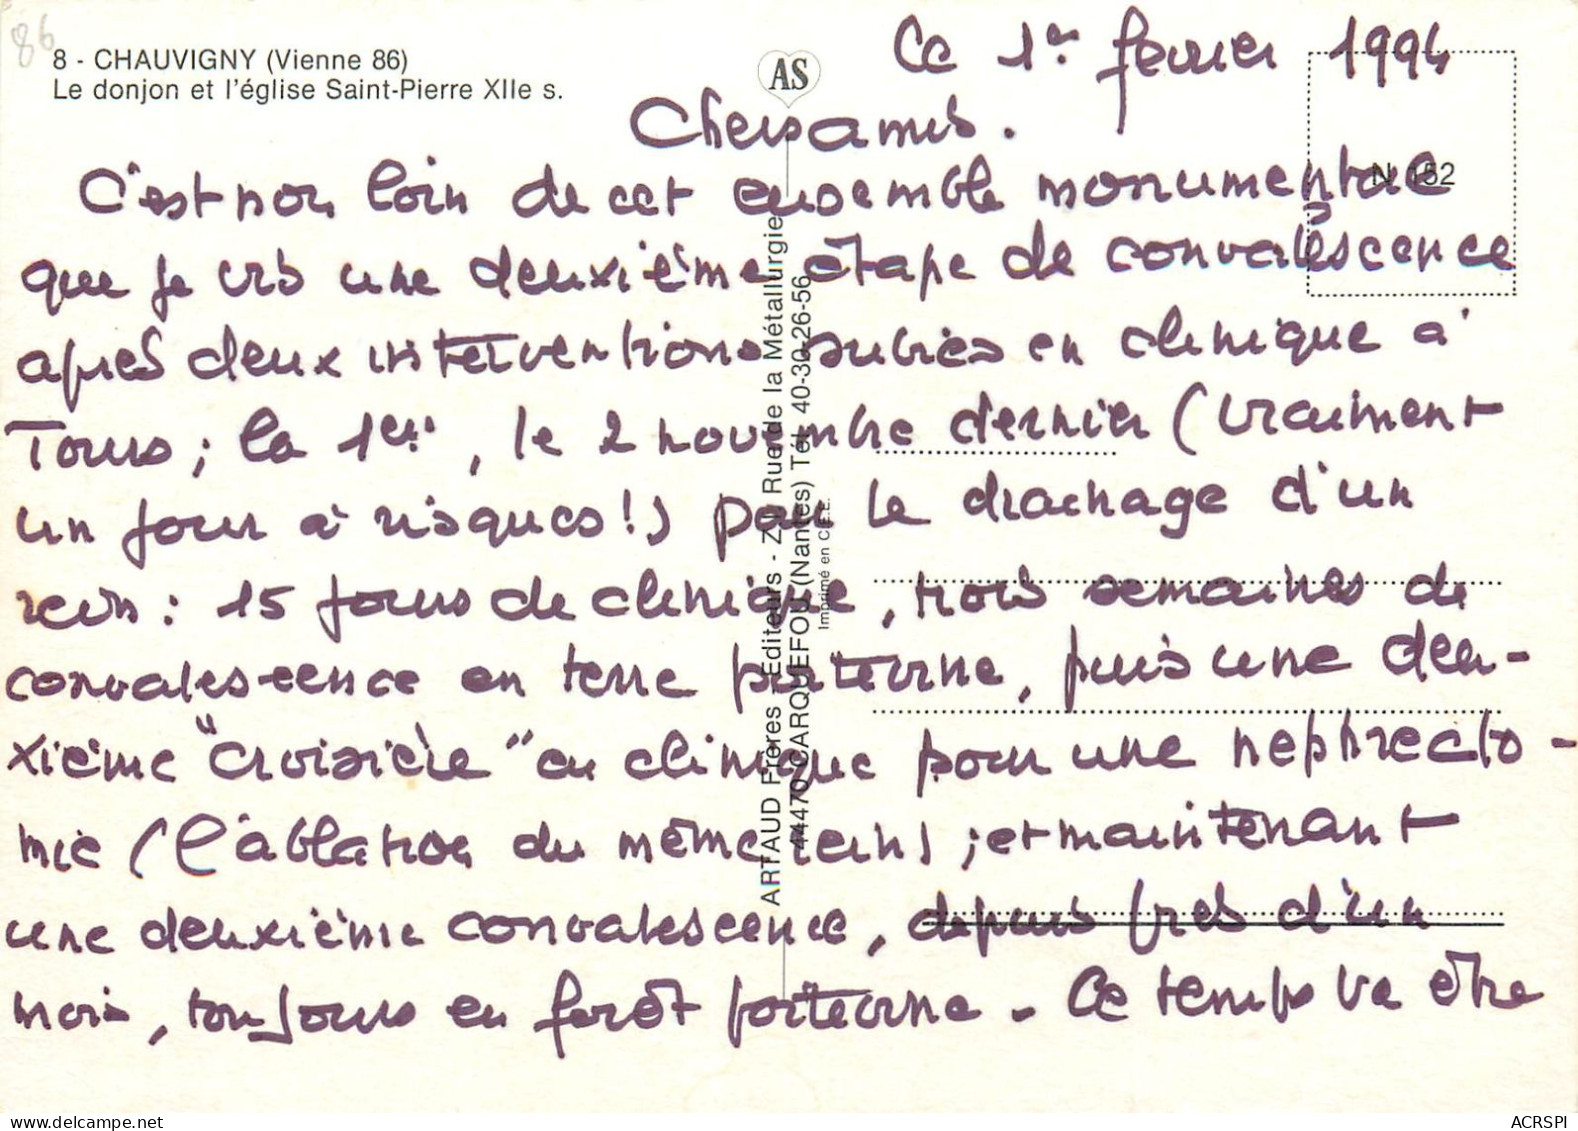 86
8 - CHAUVIGNY (Vienne 86)
Le donjon et l'église Saint-Pierre XIIe s.
AS
N. 152
Ce 1er fevrier 1994
Chers amis.
C'est non loin de cet ensemble monumentale
que je vis une deuxième étape de convalescence
après deux interventions subies en clinique à
Tours ; la 1ère, le 2 novembre dernier (vraiment
un jour à risques !) pour le drainage d'un
rein : 15 jours de clinique, trois semaines de
convalescence en terre poitevine, puis une deu-
xième "croisière" en clinique pour une nephrecto-
mie (l'ablation du même rein) ; et maintenant
une deuxième convalescence, depuis près d'un
mois, toujours en forêt poitevine - Ce temps va être
ARTAUD Frères Editeurs - ZI Rue de la Métallurgie
44470 CARQUEFOU (Nantes) Tél. 40-30-26-56
Imprimé en C.E.E.
ACRSPI